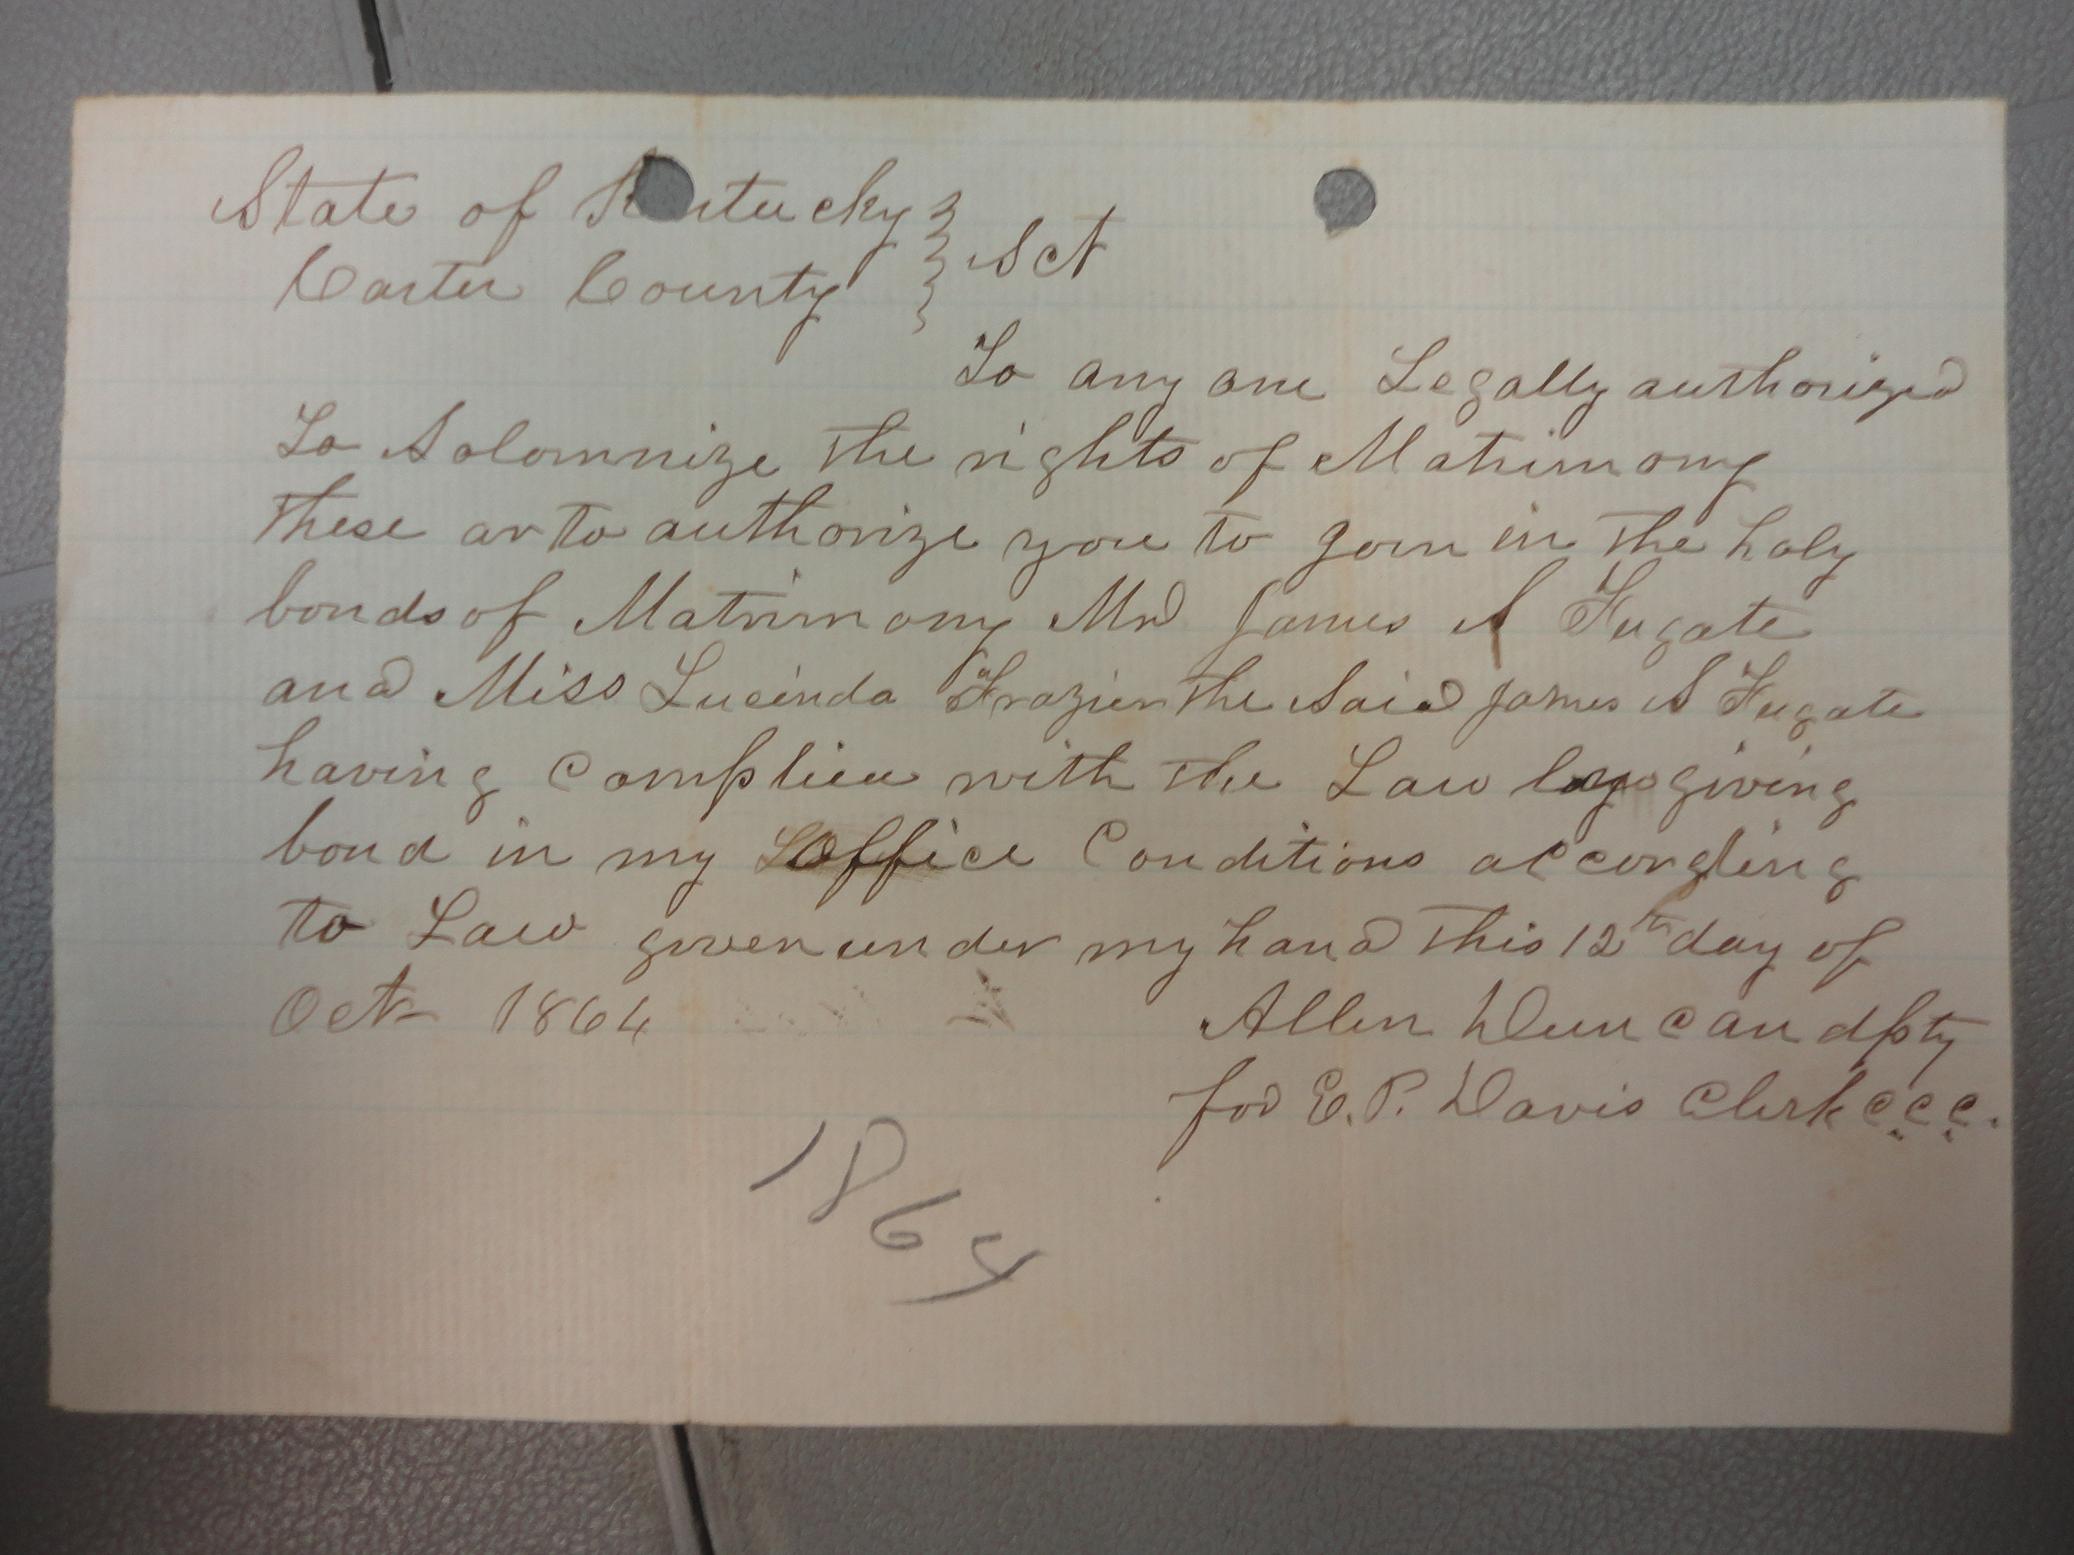 State of Kentucky
Carter County } Sct
To any one Legally authorized
To Solomnize the rights of Matrimony
these ar to authorize you to join in the holy
bonds of Matrimony Mr James S Fugate
and Miss Lucinda Frazier the Said James S Fugate
having Complied with the Law by giving
bond in my Office Conditions according
to Law given under my hand this 12th day of
Oct 1864
Allen Duncan dpty
for E. P. Davis Clerk C.C.C.
1864